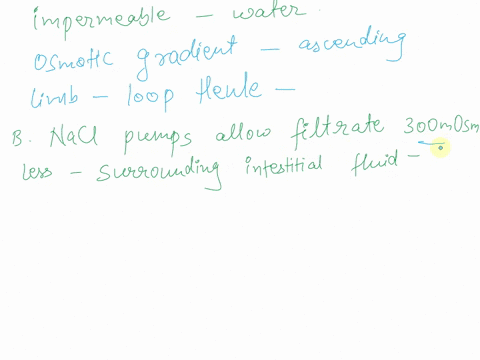 impermeable - water.
Osmotic gradient - ascending
limb - loop Henle -
B. NaCl pumps allow filtrate 300mOsm
less - surrounding intestitial fluid -